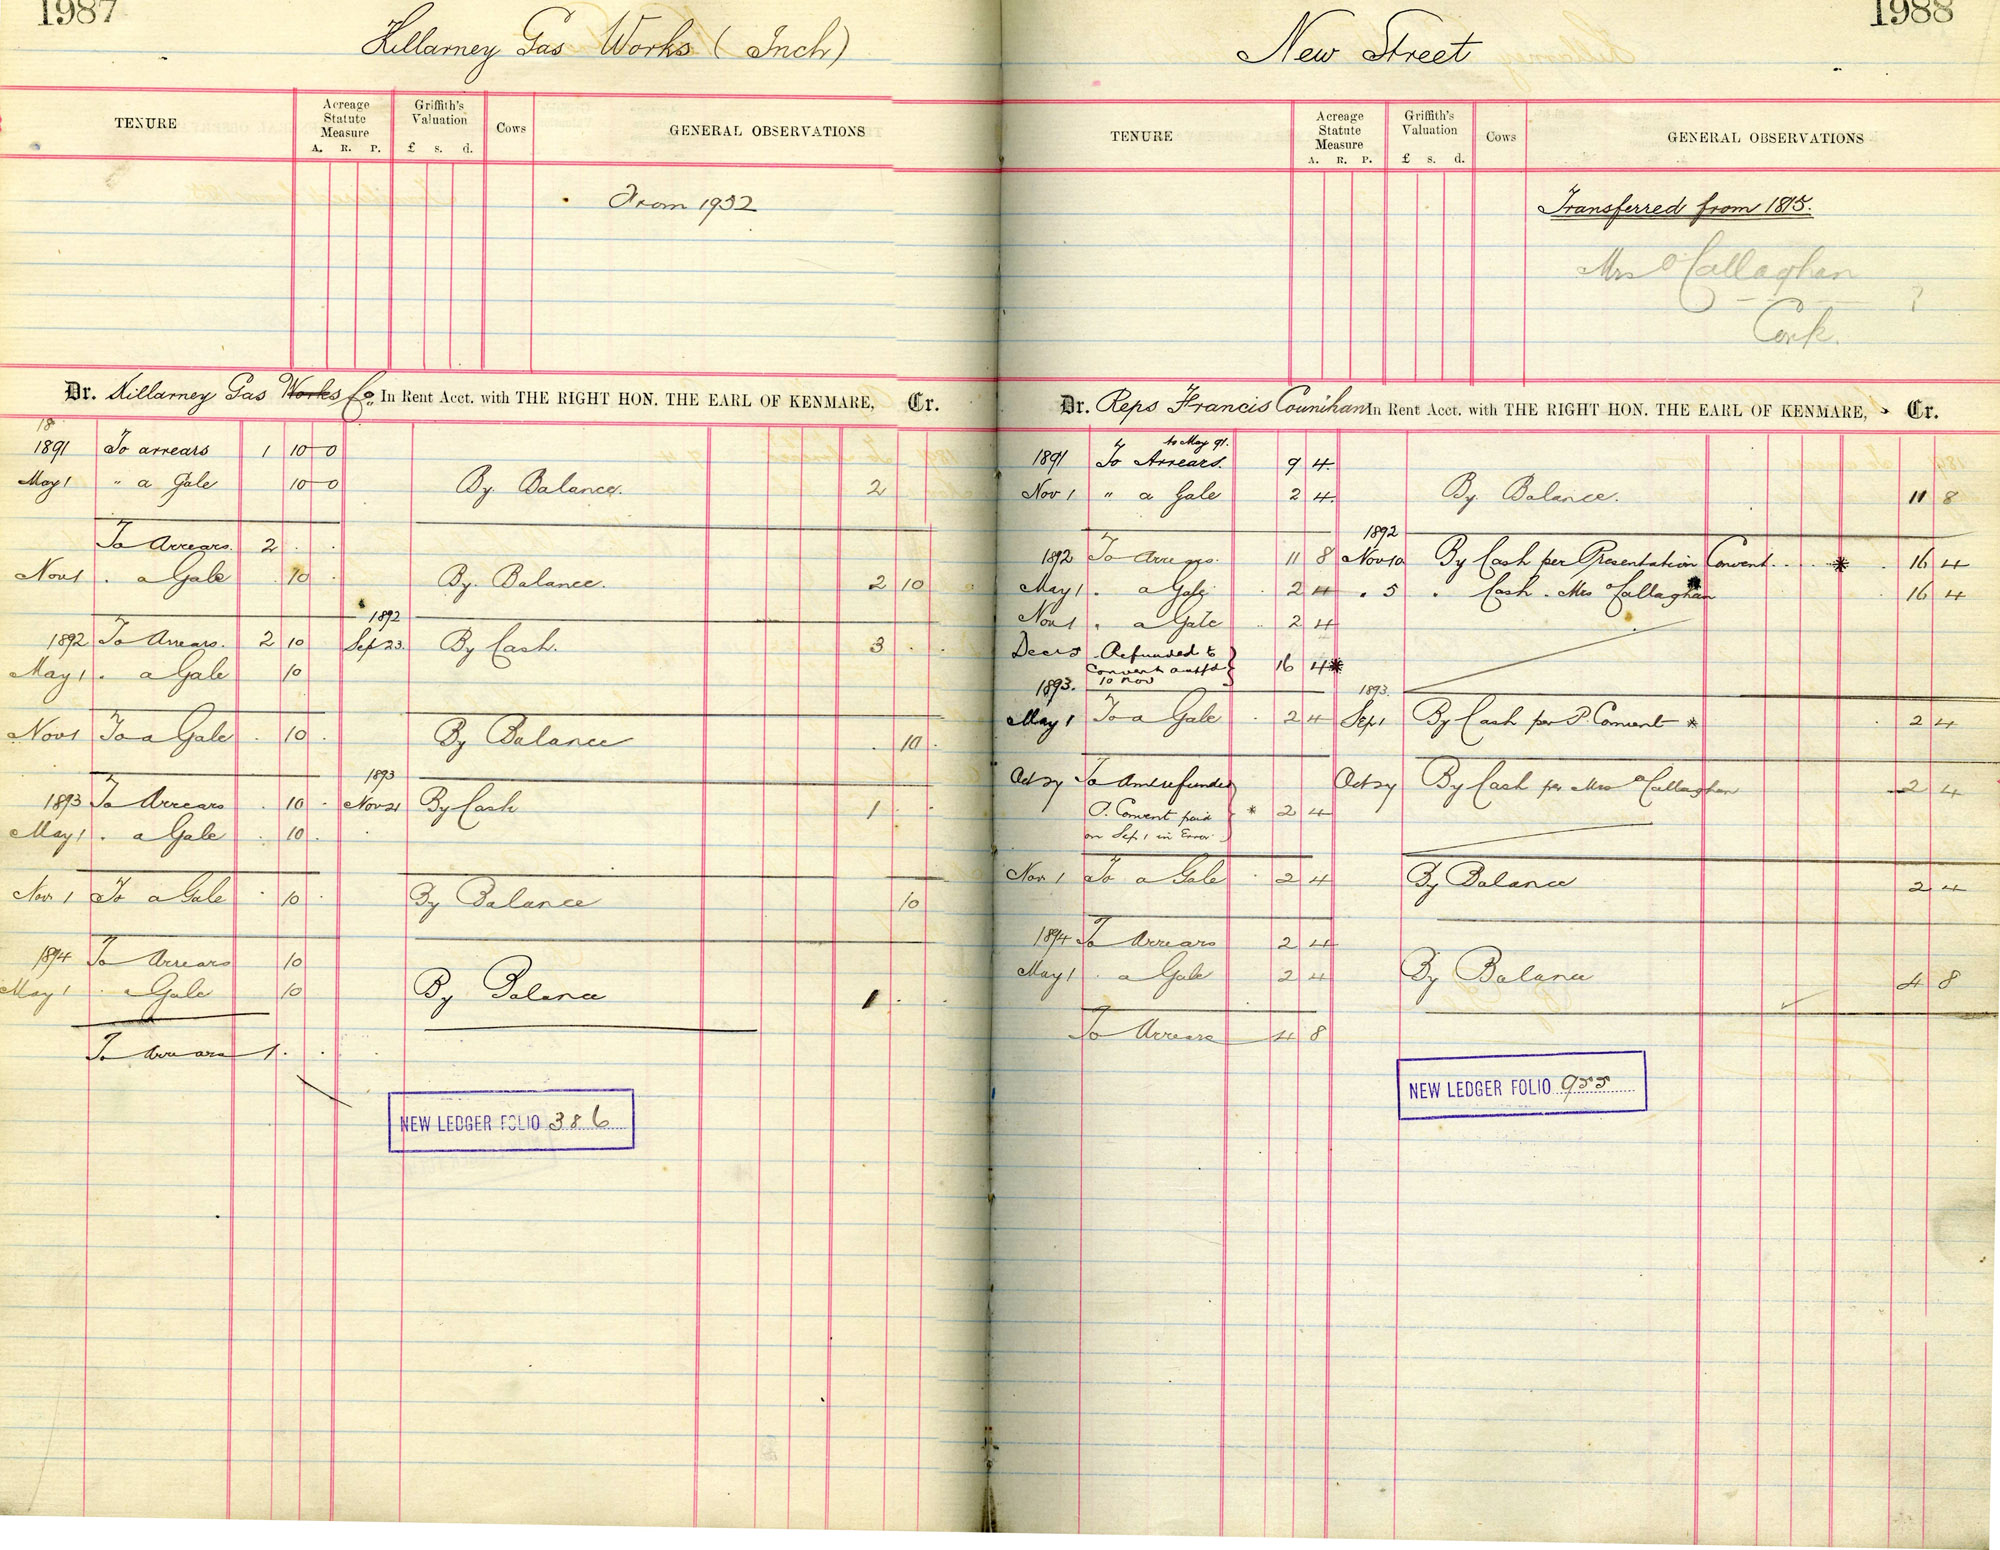 1987
Killarney Gas Works (Inch)
TENURE
Acreage Statute Measure
A. R. P.
Griffith's Valuation
£ s. d.
Cows
GENERAL OBSERVATIONS
From 1932
Dr. Killarney Gas Works Co. In Rent Acct. with THE RIGHT HON. THE EARL OF KENMARE, Cr.
18
1891 To arrears 1 10 0
May 1 " a Gale 10 0 By Balance. 2
To Arrears. 2 . .
Nov 1 . a Gale . 10 . By Balance. 2 10
1892
1892 To Arrears. 2 10 Sep 23. By Cash. 3 . .
May 1 . a Gale 10
Nov 1 To a Gale . 10 . By Balance . 10 .
1893
1893 To Arrears . 10 . Nov 21 By Cash 1 . .
May 1 . a Gale . 10 .
Nov 1 To a Gale . 10 . By Balance 10
1894 To Arrears 10
May 1 . a Gale 10 By Balance 1 . .
To Arrears 1 . .
NEW LEDGER FOLIO 386
1988
New Street
TENURE
Acreage Statute Measure
A. R. P.
Griffith's Valuation
£ s. d.
Cows
GENERAL OBSERVATIONS
Transferred from 1815.
Mrs O'Callaghan
?
Cork.
Dr. Reps Francis Counihan In Rent Acct. with THE RIGHT HON. THE EARL OF KENMARE, Cr.
to May 91.
1891 To Arrears. 9 4
Nov 1 " a Gale 2 4 By Balance. 11 8
1892
1892 To Arrears. 11 8 Nov 10 By Cash per Presentation Convent . . * . 16 4
May 1 . a Gale . 2 4 . 5 . Cash . Mrs O'Callaghan 16 4
Nov 1 . a Gale . 2 4
Decr 5 Refunded to
Convent
10 Nov } 16 4 *
1893. 1893.
May 1 To a Gale . 2 4 Sep 1 By Cash per P Convent * . 2 4
Oct 27 To Amt refunded Oct 27 By Cash per Mrs O'Callaghan 2 4
P. Convent paid * 2 4
on Sep 1 in Error.
Nov 1 To a Gale . 2 4 By Balance 2 4
1894 To Arrears 2 4
May 1 . a Gale 2 4 By Balance 4 8
To Arrears 4 8
NEW LEDGER FOLIO 955